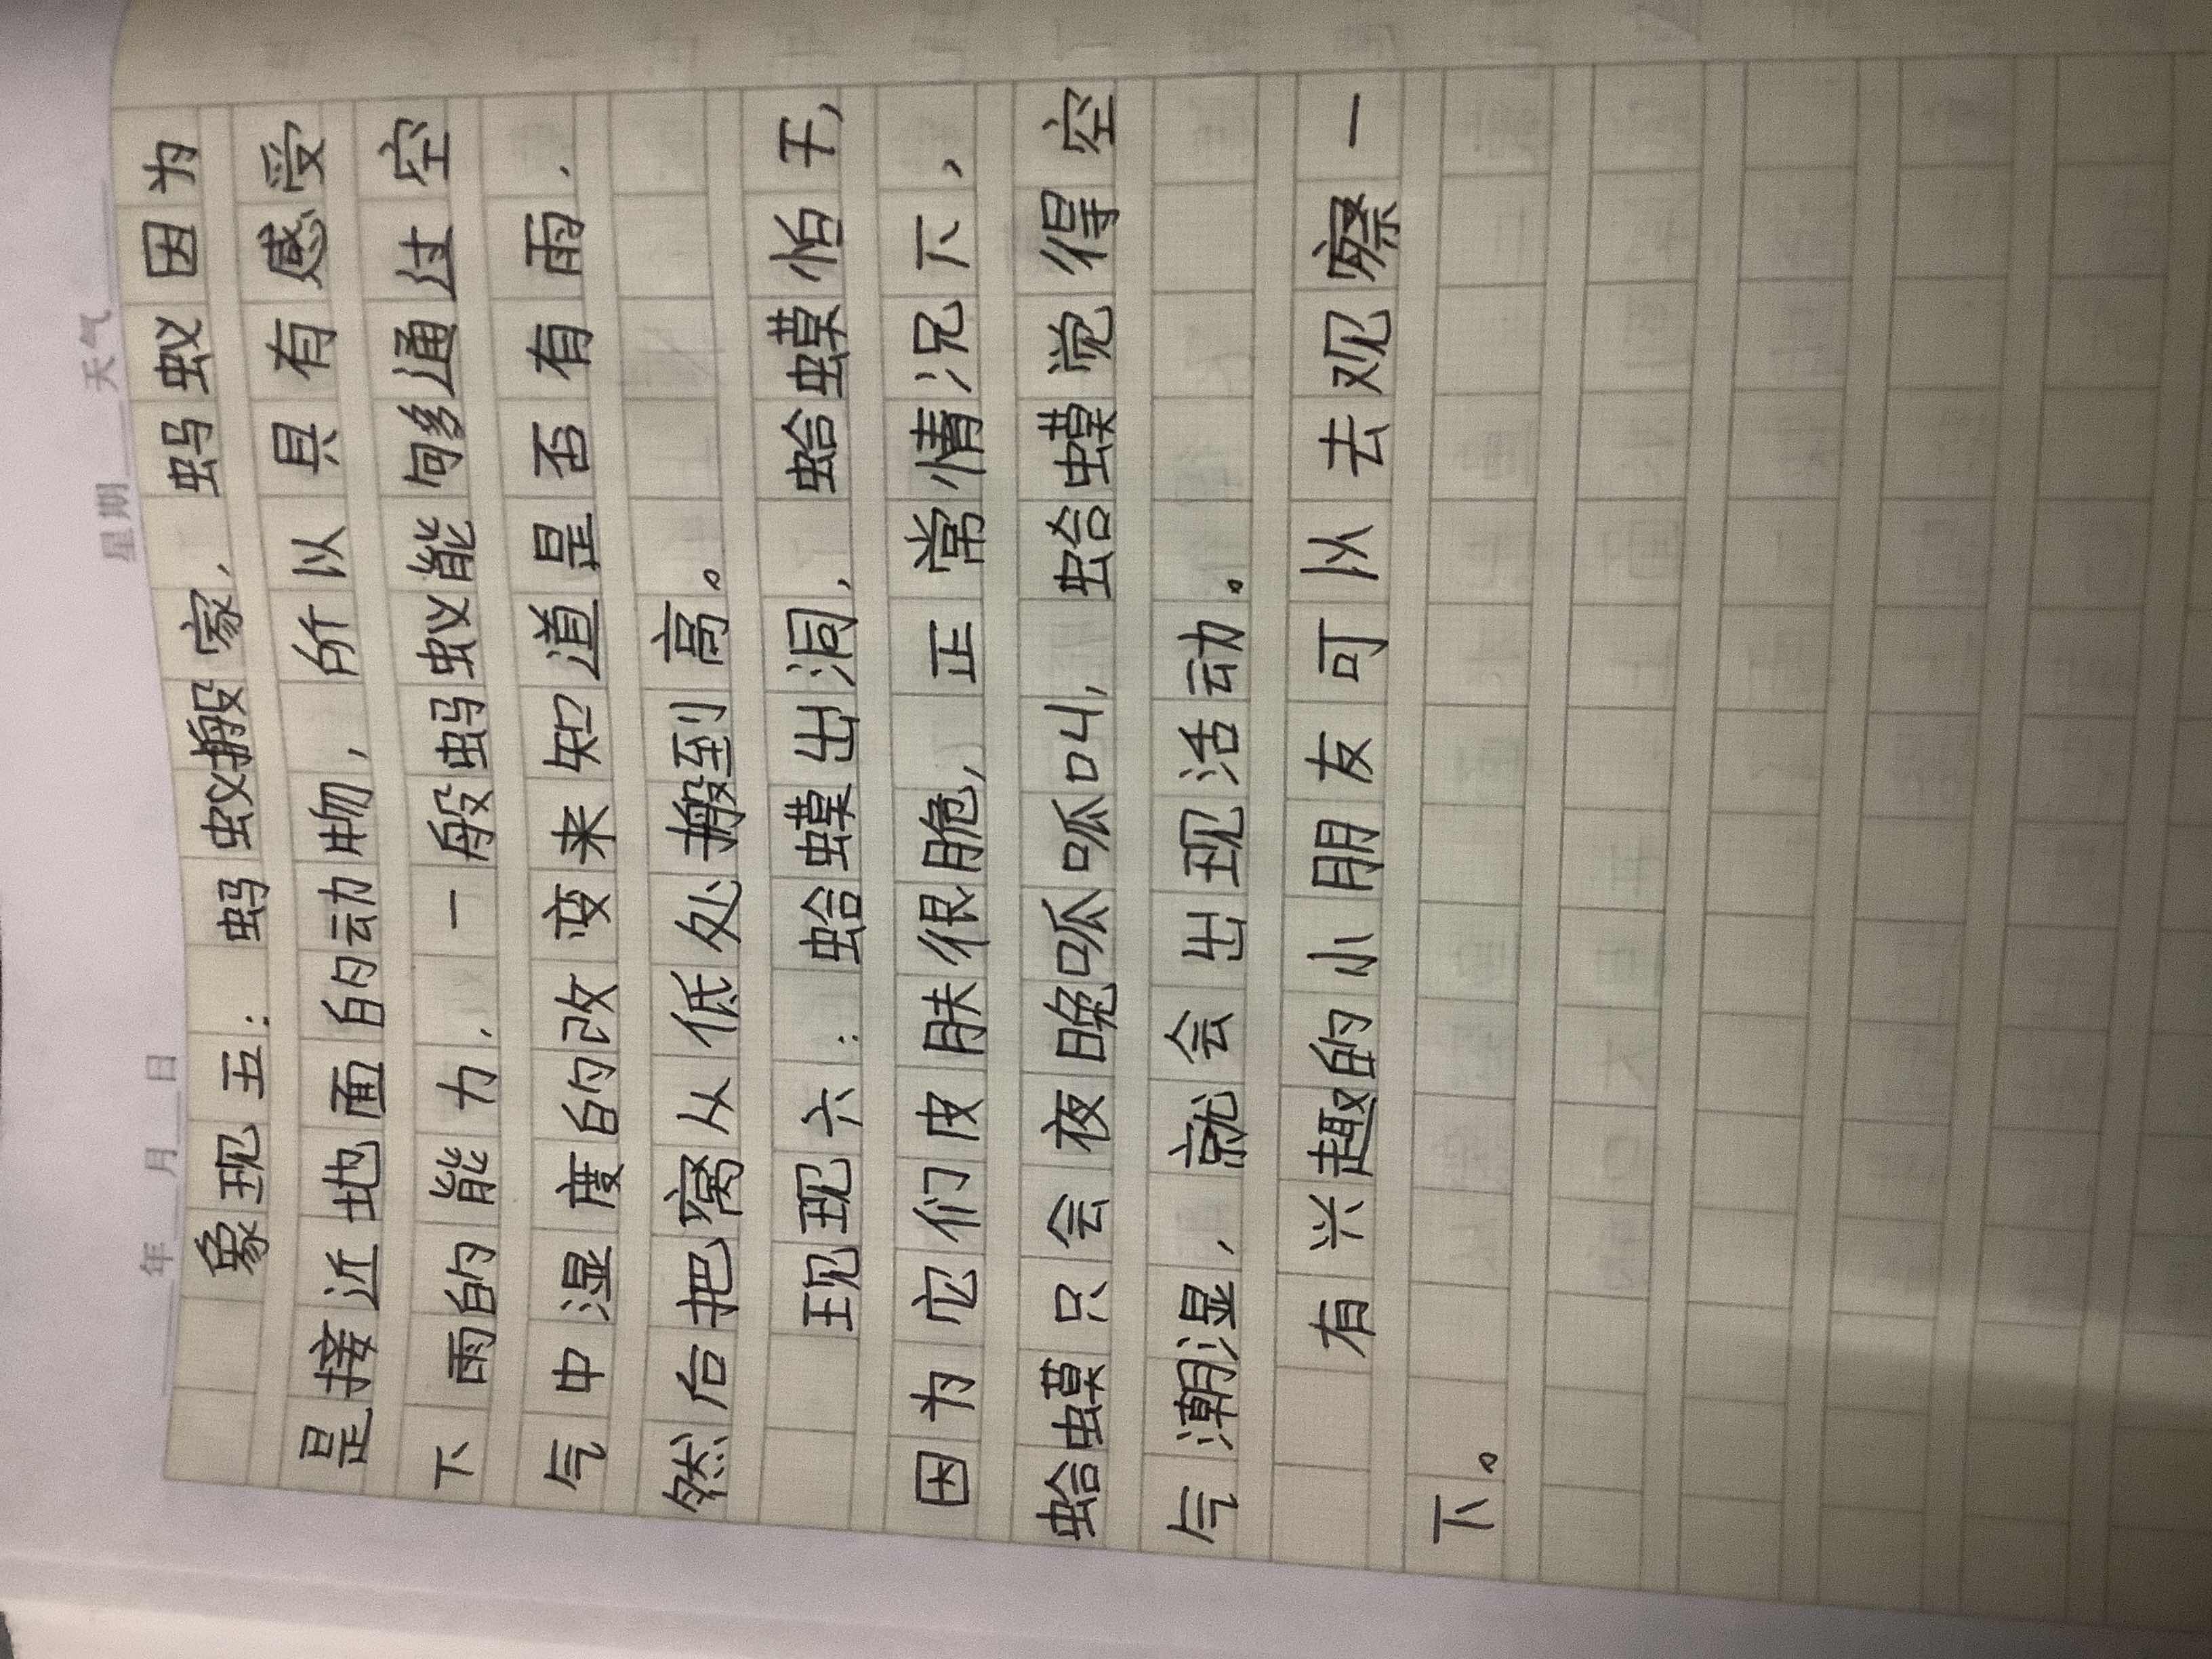 年 月 日 星期 天气
象现五：蚂蚁搬家，蚂蚁因为
是接近地面的动物，所以具有感受
下雨的能力，一般蚂蚁能够通过空
气中湿度的改变来知道是否有雨，
然后把窝从低处搬到高。
现现六：蛤蟆出洞，蛤蟆怕干，
因为它们皮肤很脆，正常情况下，
蛤蟆只会夜晚呱呱叫，蛤蟆觉得空
气潮湿，就会出现活动。
有兴趣的小朋友可以去观察一
下。